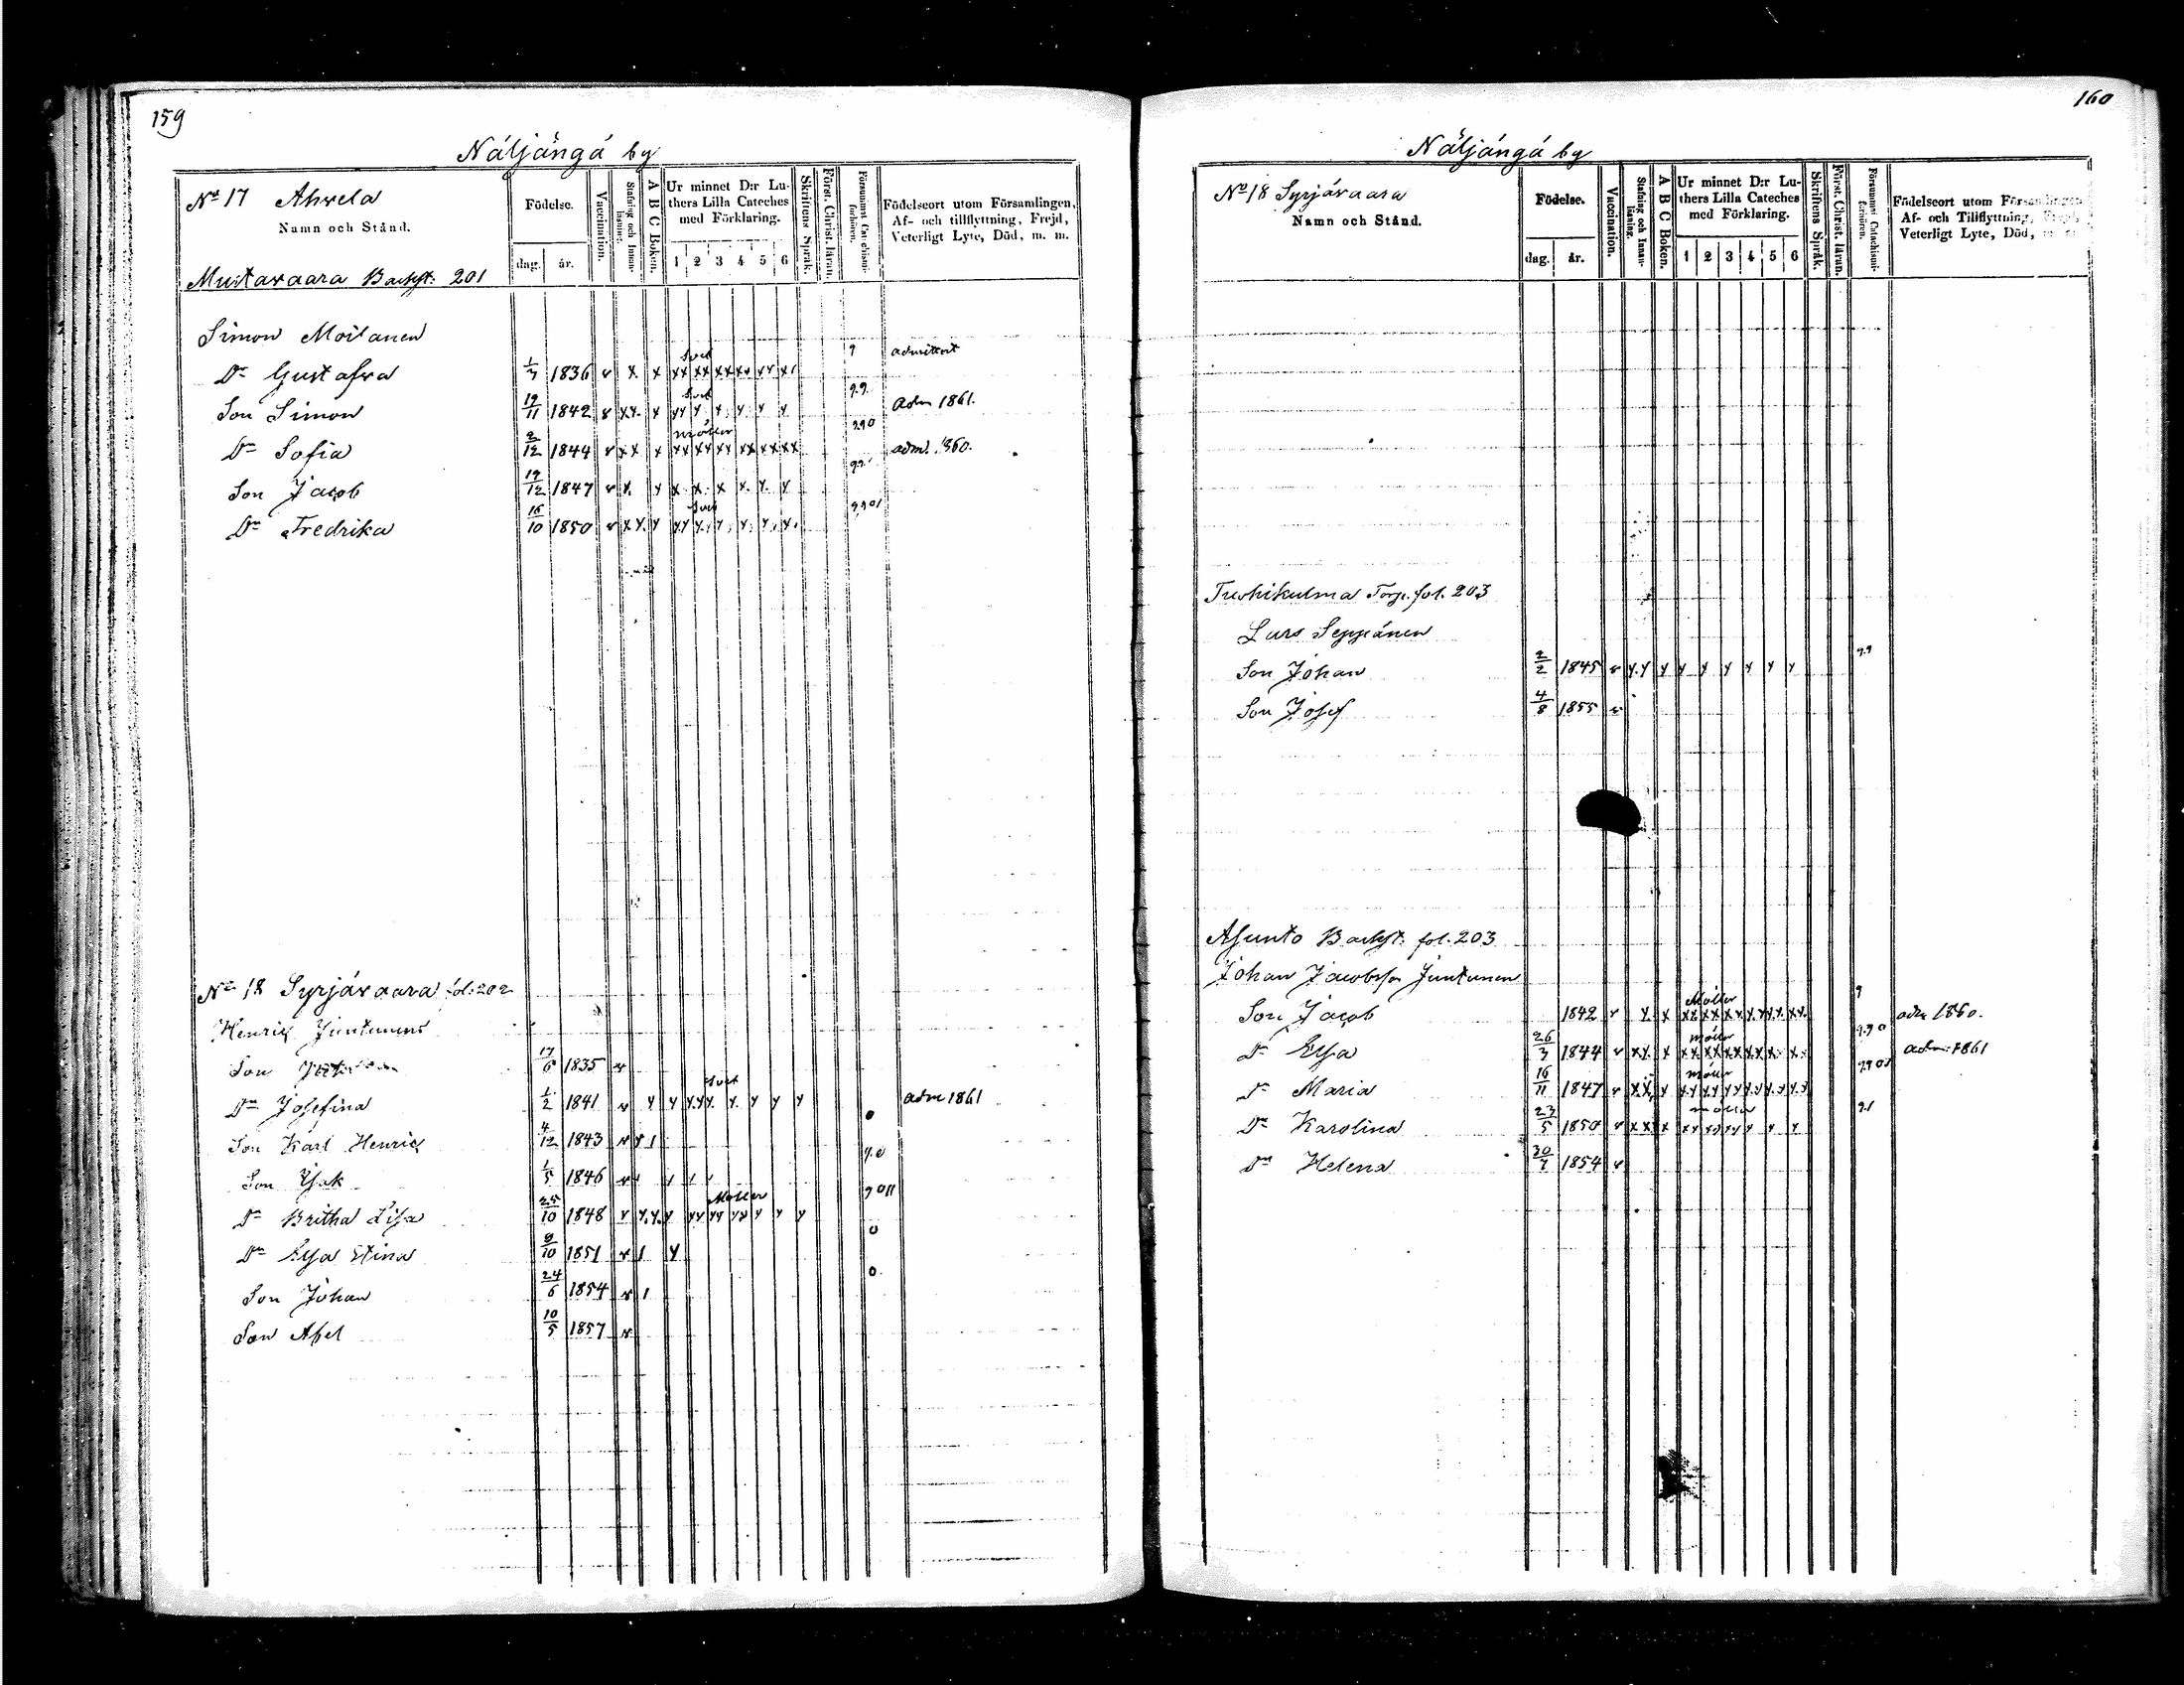 159
Näljängä by
No 17 Ahvela
Namn och Stånd.
Födelse.
dag. år.
Vaccination.
Stafning och Innanläsning.
A B C Boken.
Ur minnet D:r Luthers Lilla Cateches med Förklaring.
1 2 3 4 5 6
Skriftens Språk.
Först. Christ. läran.
Försummat Catechismiförhören.
Födelseort utom Församlingen,
Af- och tillflyttning, Frejd,
Veterligt Lyte, Död, m. m.
Mustavaara Backst: 201
Simon Moilanen
Dr Gustafva 1/7 1836 v x x xx xx xx xx xx x 9 admitterat
Son Simon 19/11 1842 v xx x xx x x x x x 99 Adm 1861.
Dr Sofia 2/12 1844 v xx x möller xx xx xx xx xx xx 990 adm. 1860.
Son Jacob 19/12 1847 v x x x x x x x x 99
Dr Fredrika 16/10 1850 v xx x xx x x x x x 9901
No 18 Syrjävaara fol: 202
Henric Juntunens
Son 17/6 1835 v
Dr Josefina 1/2 1841 v x x xx x x x x x adm 1861
Son Karl Henric 4/12 1843 v x 1
Son Isak 1/5 1846 v 9.0
Dr Britha Lisa 25/10 1848 v x.x. x Möller xx xx xx x x x 9 011
Dr Elsa Stina 9/10 1851 v 1 x 0
Son Johan 24/6 1854 v 1 0
Son Abel 10/5 1857 v
160
Näljängä by
No 18 Syrjävaara
Namn och Stånd.
Födelse.
dag. år.
Vaccination.
Stafning och Innanläsning.
A B C Boken.
Ur minnet D:r Luthers Lilla Cateches med Förklaring.
1 2 3 4 5 6
Skriftens Språk.
Först. Christ. läran.
Försummat Catechismiförhören.
Födelseort utom Församlingen
Af- och Tillflyttning,
Veterligt Lyte, Död,
Torp. fol. 203
Lars Seppänen
Son Johan 2/2 1845 v x.x x x x x x x x 9.9
Son Josef 4/8 1855 v
Asunto Backst: fol. 203
Johan Jacobsson Juntunen
Son Jacob 1842 v x x Möller xx xx xx xx xx xx 9 adm 1860.
Dr Elsa 26/3 1844 v xx x möller xx xx xx xx xx x 990 adm: 1861
Dr Maria 16/11 1847 v xx x möller xx xx xx xx xx xx
Dr Karolina 23/5 1850 v xx x möller xx xx xx x x x 91
Dr Helena 30/7 1854 v